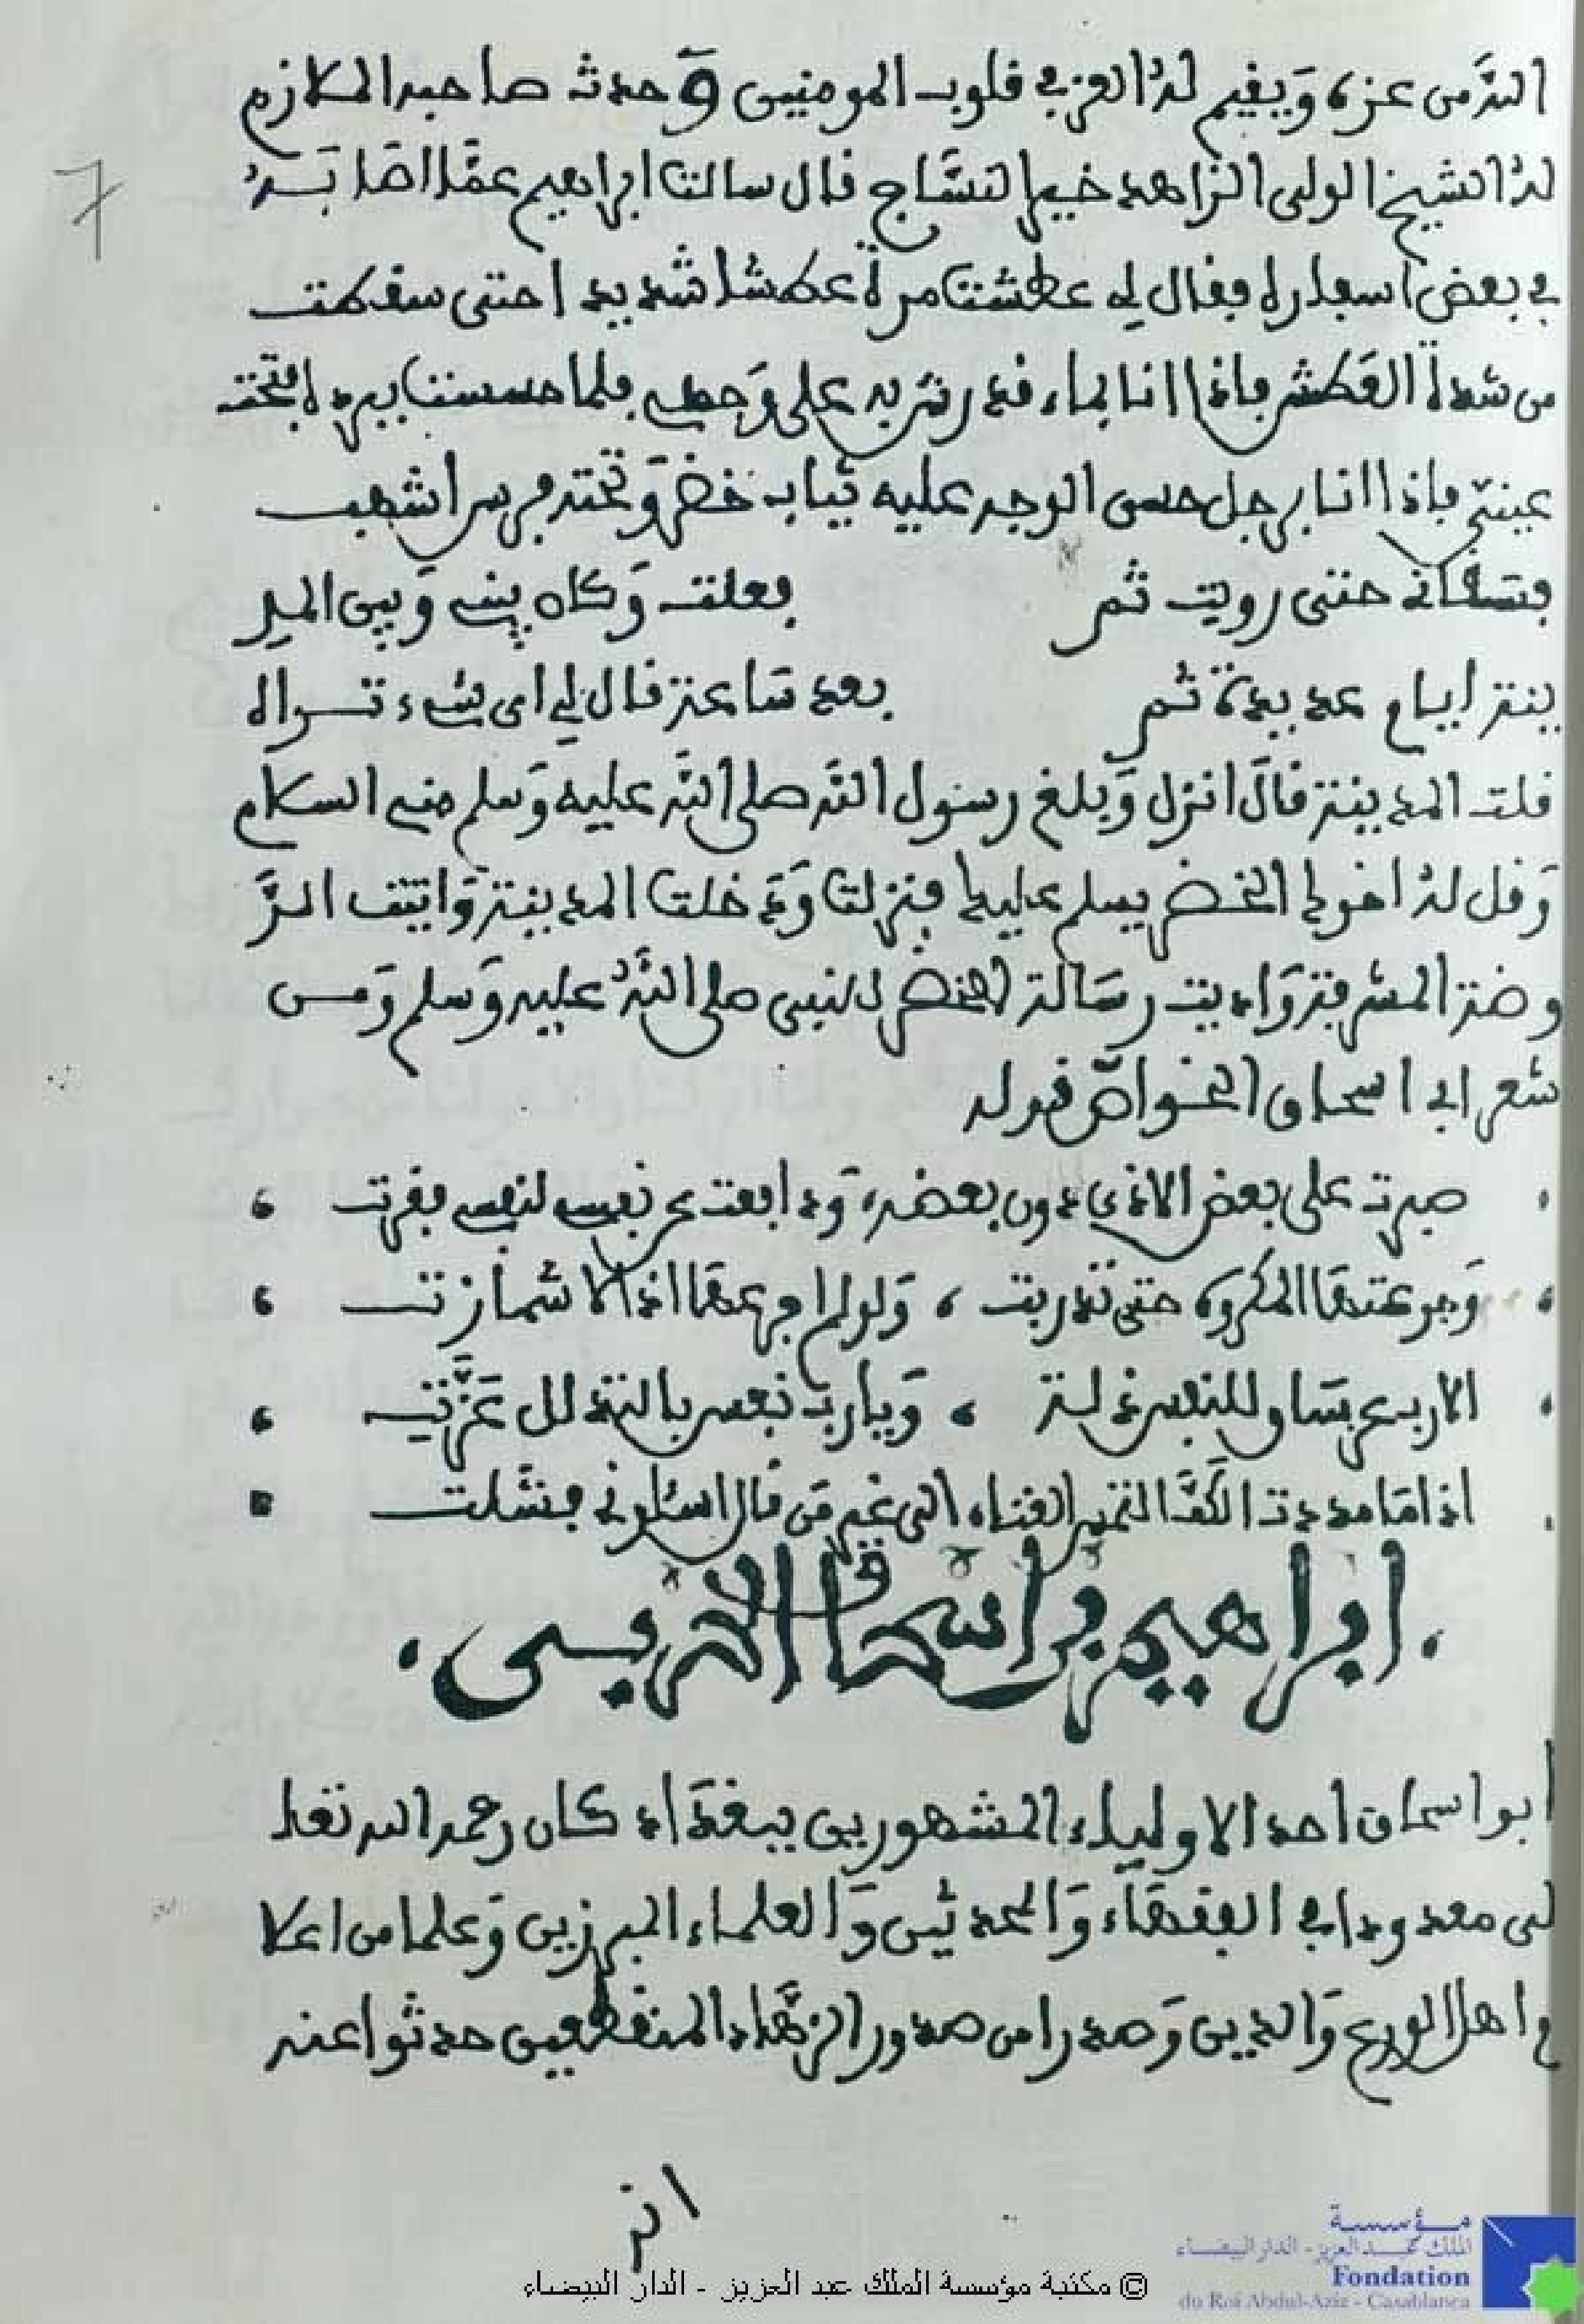 الله من عزه وَيقيم لهُ العز في قلوب المومنين وَحدث صاحبه الملازم
7
لهُ الشيخ الولي الزاهد خير النسَّاج قال سالت ابراهيم عمَّا اصَابَـهُ
في بعض اسفاره فقال لي عطشت مرة عطشا شديدا حتى سقطت
من شدة العَطش فاذا انا بماء قد رش به على وَجهي فلما حسست ببرده افتحت
عينيَّ فاذا انا برجل حسن الوجه عليه ثياب خضر وَتحته فرس اشهب
فسقاني حتى رويت ثم فعلت وَكان بيني وَبين المد
ينة ايام عديدة ثم بعد سَاعة قال لي اي شيء تـراه
قلت المدينة قالَ انزل وَبلغ رسول الله صلى الله عليه وَسلم مني السلام
وَقل لهُ اخوك الخضر يسلم عليك فنزلت وَدَخلت المدينة وَاتيت الـرَّ
وضة المشرفة وَاديت رسَالة الخضر للنبي صلى اللهُ عليه وَسلم وَمـن
شعر ابي اسحاق الخواصّ قوله
صبرت على بعض الاذى دون بعضه، وَدافعت عن نفسي لنفسي فقرت ،
، وَجرعتها المكروه حتى تدربت ، وَلو لم اجرعها اذا لاشمازت ،
الا رب عز سَاق للنفس ذلة ، وَيا رب نفس بالتذلل عَزَّت ،
اذا مَا مددت الكَفَّ التمس الغناء الى غير مَن قال اسئلوني فشلت
. ابراهيم بن اسحاق الحربي .
ابو اسحاق احد الاولياء المشهورين ببغدَاد كان رحمه الله تعا
لى معدودا في الفقهَاء وَالمحدثين وَالعلماء المبرزين وَعلما من اعلا
م اهل الورع وَالدين وَصدرا من صدور الزهَّاد المنقطعين حدثوا عنه
انه
© مكتبة مؤسسة الملك عبد العزيز - الدار البيضاء
مؤسسة
الملك عبد العزيز - الدار البيضاء
Fondation
du Roi Abdul-Aziz - Casablanca